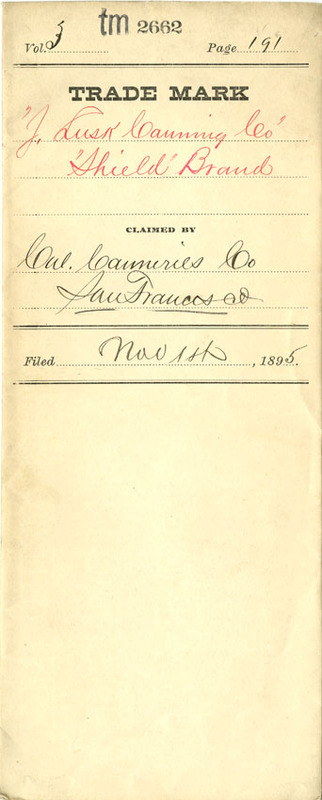 Vol. 3 tm 2662 Page 191
TRADE MARK
"J. Lusk Canning Co"
"Shield" Brand
CLAIMED BY
Cal. Canneries Co
San Francisco
Filed Nov 1st, 1895.